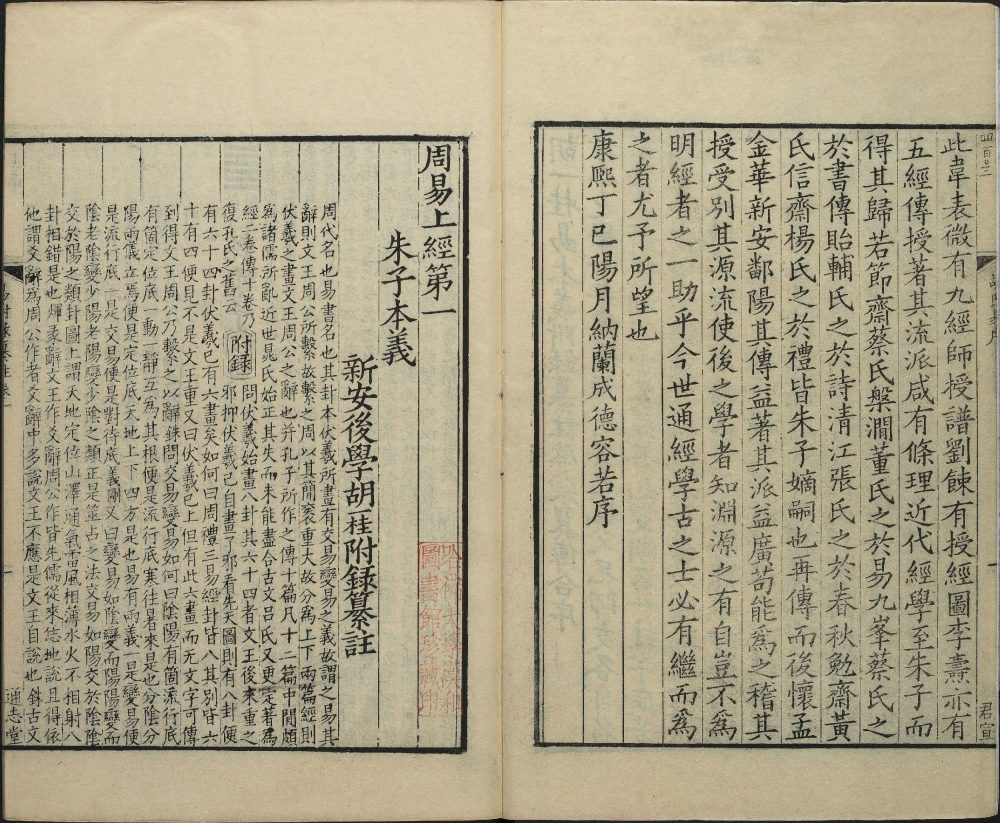 此韋表微有九經師授譜劉餗有授經圖李燾亦有
五經傳授著其流派咸有條理近代經學至朱子而
得其歸若節齋蔡氏槃澗董氏之於易九峯蔡氏之
於書傳貽輔氏之於詩清江張氏之於春秋勉齋黃
氏信齋楊氏之於禮皆朱子嫡嗣也再傳而後懷孟
金華新安鄱陽其傳益著其派益廣苟能為之稽其
授受別其源流使後之學者知淵源之有自豈不為
明經者之一助乎今世通經學古之士必有繼而為
之者尤予所望也
康熙丁巳陽月納蘭成德容若序
君宣
周易上經第一
朱子本義
新安後學胡一桂附録纂註
周代名也易書名也其卦本伏羲所畫有交易變易之義故謂之易其
辭則文王周公所繫故繫之周以其簡袠重大故分為上下兩篇經則
伏羲之畫文王周公之辭也并孔子所作之傳十篇凡十二篇中間頗
為諸儒所亂近世晁氏始正其失而未能盡合古文呂氏又更定著為
經二卷傳十卷乃復孔氏之舊云
附録
問伏羲始畫八卦其六十四者文王後來重之
邪抑伏羲已自畫了邪看先天圖則有八卦便
有六十四卦伏羲已有六畫矣如何曰周禮三易經卦皆八其別皆六
十有四便見不是文王重又曰伏羲已上但有此六畫而無文字可傳
到得文王周公乃繫之以辭銖問交易變易如何曰陰陽有箇流行底
有箇定位底一動一靜互為其根便是流行底寒往暑來是也分陰分
陽兩儀立焉便是定位底天地上下四方是也易有兩義一是變易便
是流行底一是交易便是對待底義剛又曰變易如陰變而陽陽變而
陰老陰變少陽老陽變少陰之類正是筮占之法交易如陽交於陰陰
交於陽之類卦圖上謂天地定位山澤通氣雷風相薄水火不相射八
卦相錯是也煇彖辭文王作爻辭周公作皆先儒從來恁地說且得依
他謂爻辭為周公作者爻辭中多說文王不應是文王自說也銖古文
通志堂